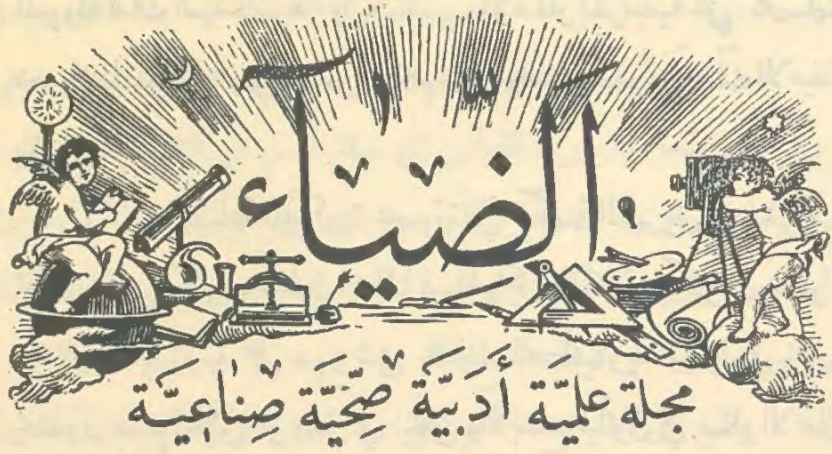 الضيآء
مجلة علميّة أدبيّة صحّيّة صناعيّة